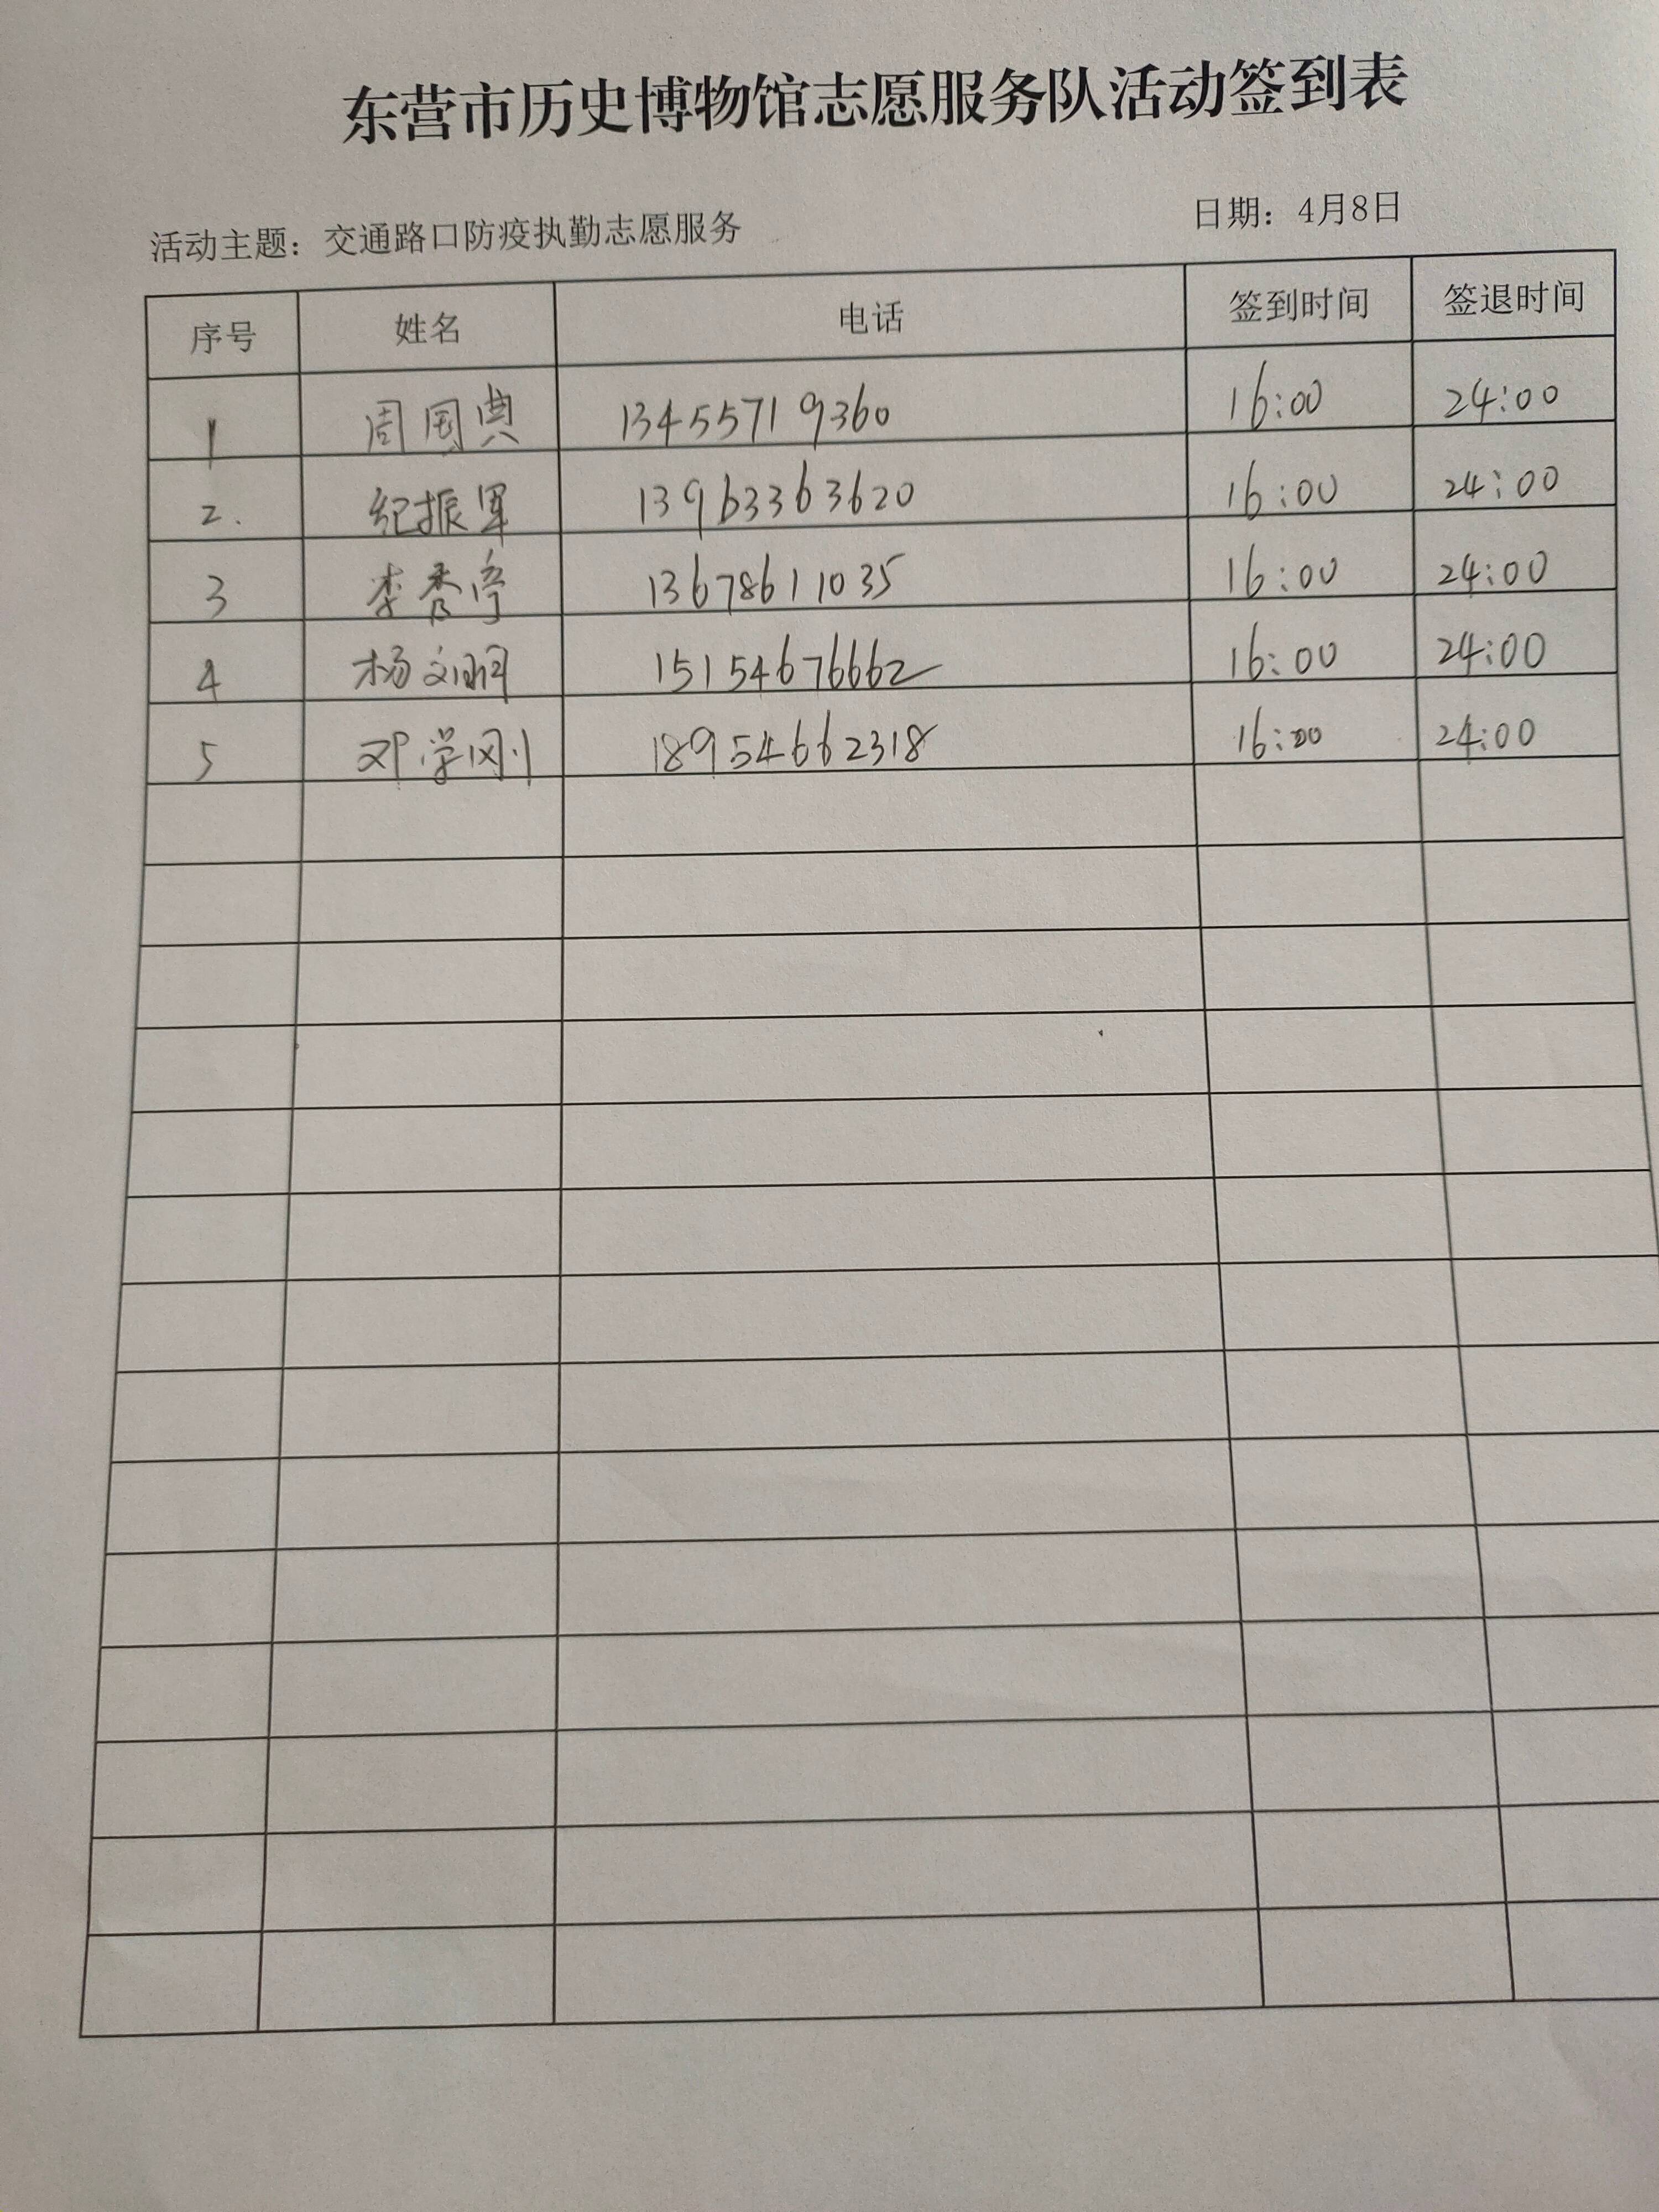 东营市历史博物馆志愿服务队活动签到表
活动主题：交通路口防疫执勤志愿服务 日期：4月8日
序号 姓名 电话 签到时间 签退时间
1 周国典 13455719360 16:00 24:00
2. 纪振军 13963363620 16:00 24:00
3 李秀亭 13678611035 16:00 24:00
4 杨 15154676662 16:00 24:00
5 邓学刚 18954662318 16:00 24:00